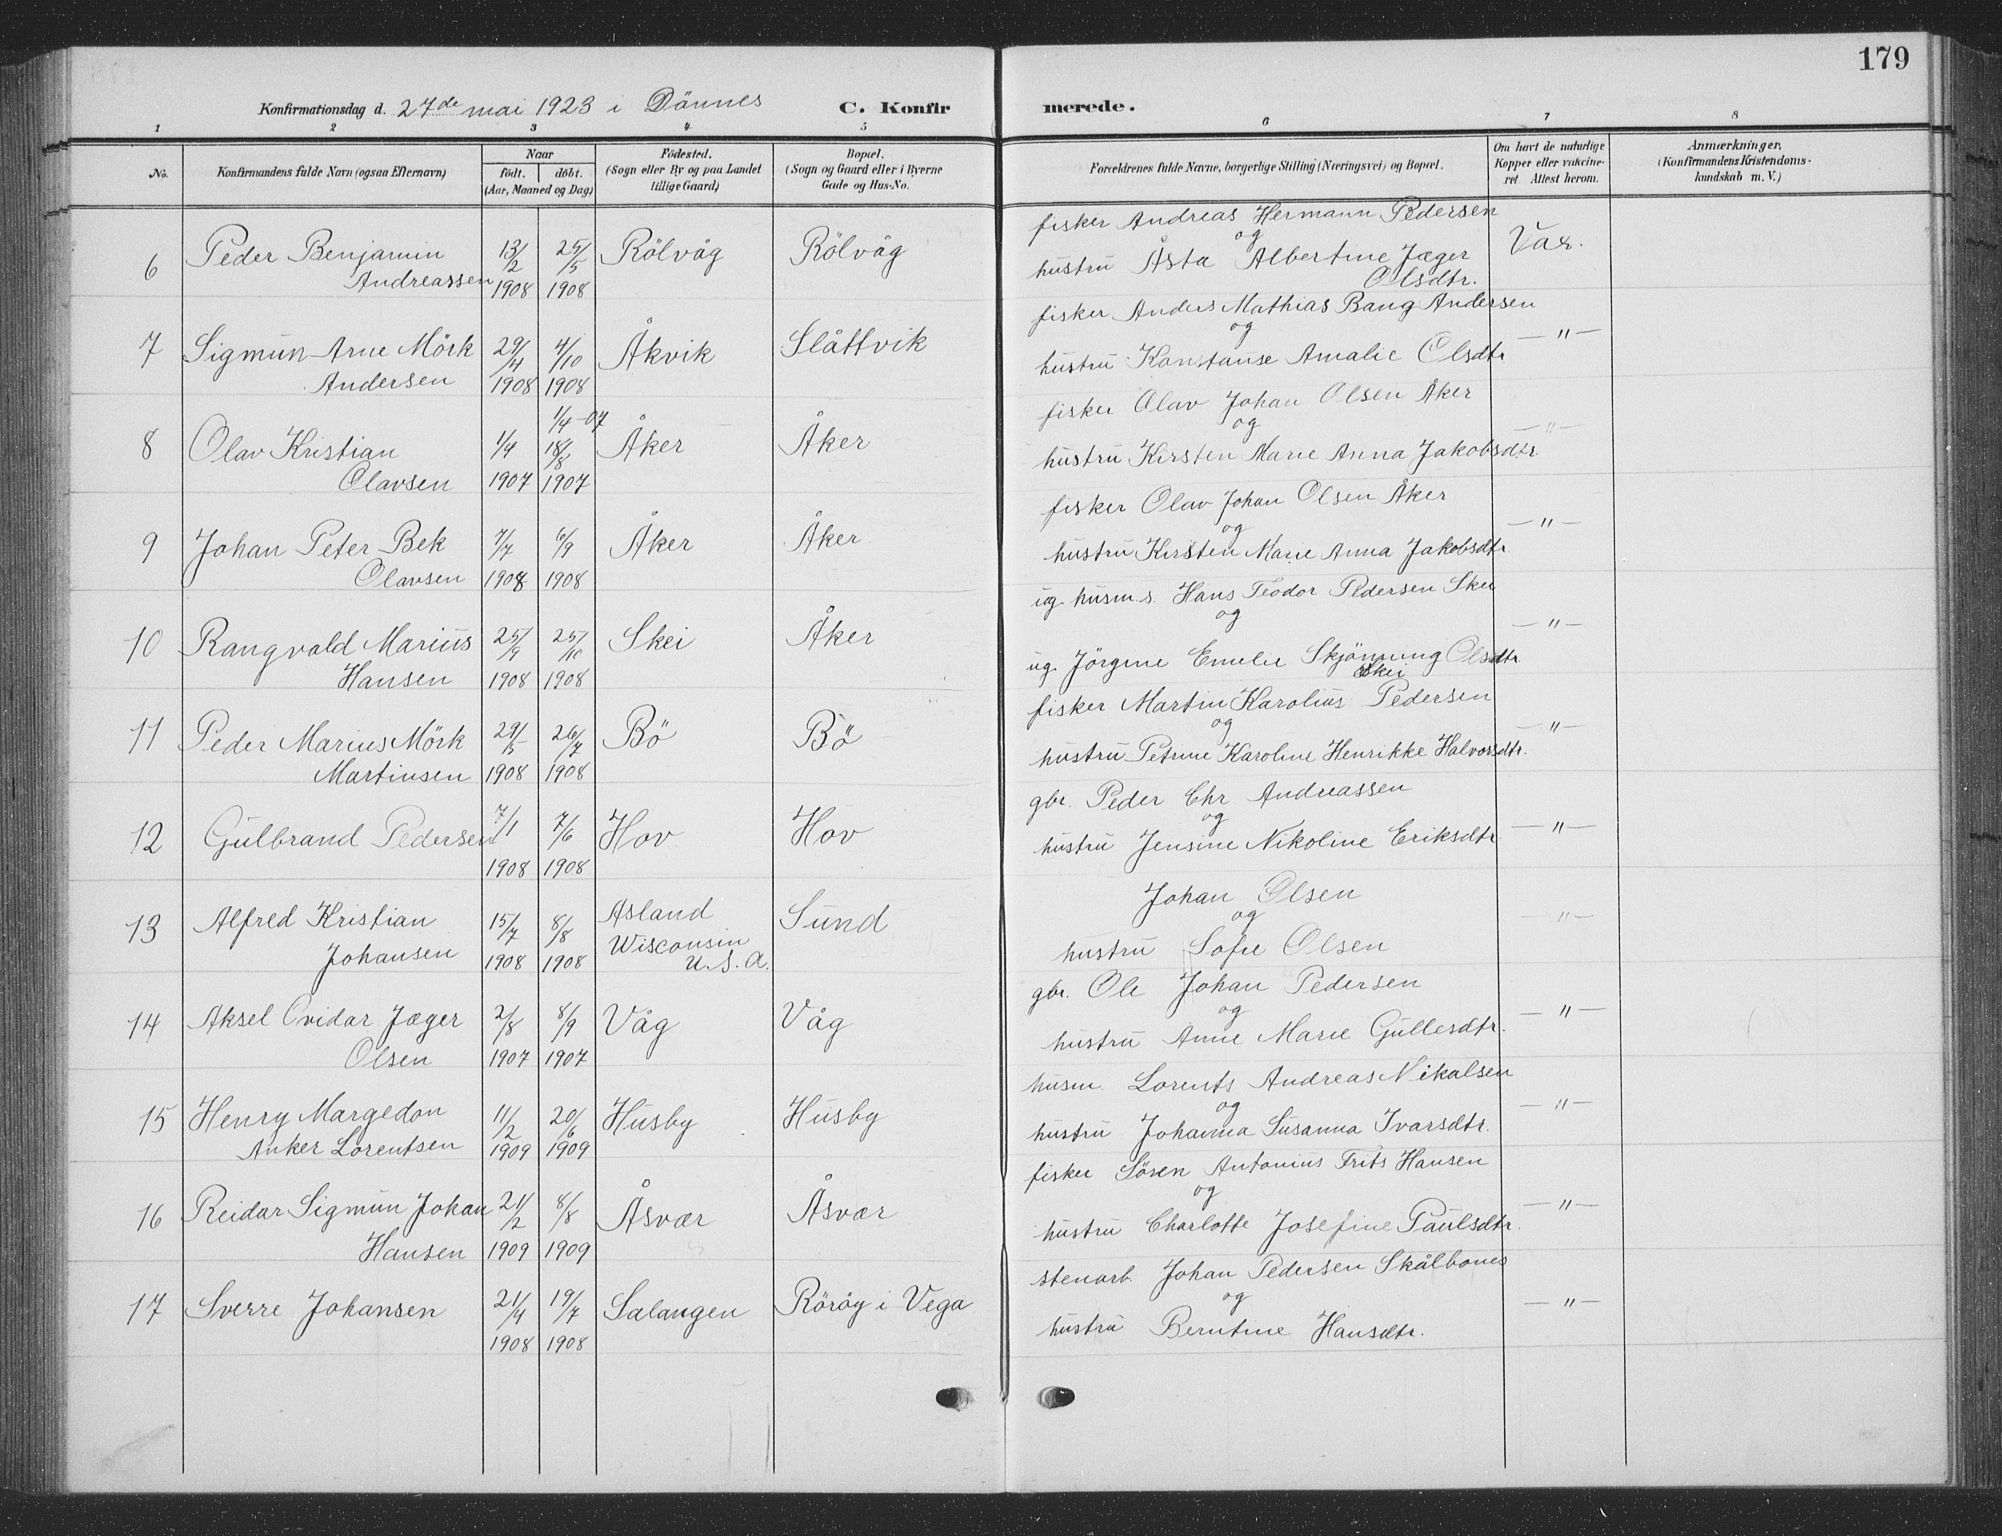 179
Konfirmationsdag d. 27de mai 1923 i Dönnes C. Konfirmerede.
1 2 3 4 5 6 7 8
No. Konfirmandens fulde Navn (ogsaa Efternavn) Naar født. døbt. (Aar, Maaned og Dag) Fødested. (Sogn eller By og paa Landet tillige Gaard) Bopæl. (Sogn og Gaard eller i Byerne Gade og Hus-No. Forældrenes fulde Navne, borgerlige Stilling (Næringsvei) og Bopæl. Om havt de naturlige Kopper eller vakcineret. Attest herom. Anmærkninger, (Konfirmandens Kristendomskundskab m. V.)
fisker Andreas Hermann Pedersen
6 Peder Benjamin 13/2 25/5 Rölvåg Rölvåg og Vax.
Andreassen 1908 1908 hustru Åsta Albertine Jæger
Olsdtr.
fisker Anders Mathias Bang Andersen
7 Sigmun Arne Mörk 29/4 4/10 Åkvik Slåttvik og —"—
Andersen 1908 1908 hustru Konstanse Amalie Olsdtr
1/4-07 fisker Olav Johan Olsen Åker
8 Olav Kristian 1/4 18/8 Åker Åker og —"—
Olavsen 1907 1907 hustru Kirsten Marie Anna Jakobsdtr.
fisker Olav Johan Olsen Åker
9 Johan Peter Bek 7/7 6/9 Åker Åker og —"—
Olavsen 1908 1908 hustru Kirsten Marie Anna Jakobsdtr
ug. husm.s. Hans Teodor Pedersen Skei
10 Rangvald Marius 25/9 25/10 Skei Åker og —"—
Hansen 1908 1908 ug. Jörgine Emelie Skjönning Olsdtr
Skei
fisker Martin Karolius Pedersen
11 Peder Marius Mörk 29/5 26/7 Bö Bö og —"—
Martinsen 1908 1908 hustru Petrine Karoline Henrikke Halvorsdtr.
gbr. Peder Chr. Andreassen
12 Gulbrand Pedersen 7/1 7/6 Hov Hov og —"—
1908 1908 hustru Jensine Nikoline Eriksdtr
Johan Olsen
13 Alfred Kristian 15/7 8/8 Asland Sund og —"—
Johansen 1908 1908 Wisconsin hustru Sofie Olsen
U.S.A.
gbr. Ole Johan Pedersen
14 Aksel Ovidar Jæger 2/8 8/9 Våg Våg og —"—
Olsen 1907 1907 hustru Anne Marie Gullesdtr.
husm. Lorents Andreas Nikalsen
15 Henry Margedon 11/2 20/6 Husby Husby og —"—
Anker Lorentsen 1909 1909 hustru Johanna Susanna Ivarsdtr.
fisker Sören Antonius Frits Hansen
16 Reidar Sigmun Johan 21/2 8/8 Åsvær Åsvær og —"—
Hansen 1909 1909 hustru Charlotte Josefine Paulsdtr.
stenarb. Johan Pedersen Skålbones
17 Sverre Johansen 21/4 19/7 Salangen Röröy i Vega og —"—
1908 1908 hustru Berntine Hansdtr.